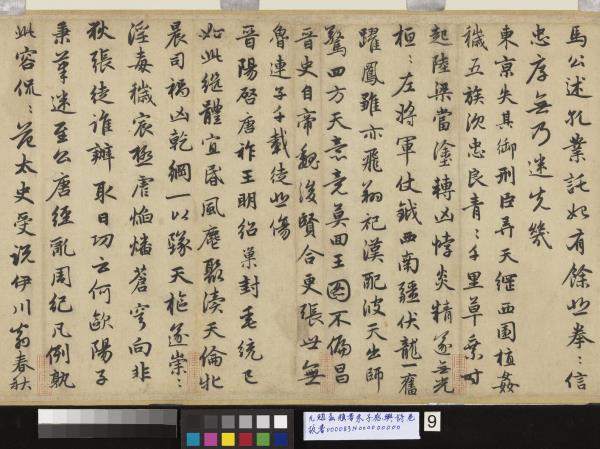 馬公述孔業託始有餘悲拳〻信
忠厚無乃迷先幾
東京失其御刑臣弄天綱西園植姦
穢五族沉忠良青〻千里草乘時
起陸梁當塗轉凶悖炎精遂無光
桓〻左將軍仗鉞西南疆伏龍一奮
躍鳳雛亦飛翔祀漢配彼天出師
驚四方天意竟莫回王圖不偏昌
晉史自帝魏後賢合更張世無
魯連子千載徒悲傷
晉陽啓唐祚王明紹巢封垂統已
如此繼體宜昏風麀聚瀆天倫牝
晨司禍凶乾綱一以墜天樞遂崇〻
淫毒穢宸極虐焰燔蒼穹向非
狄張徒誰辦取日功云何歐陽子
秉筆迷至公唐經亂周紀凡例孰
此容侃〻范太史受說伊川翁春秋
元趙孟頫書朱子感興詩卷
故書000083N000000000
9